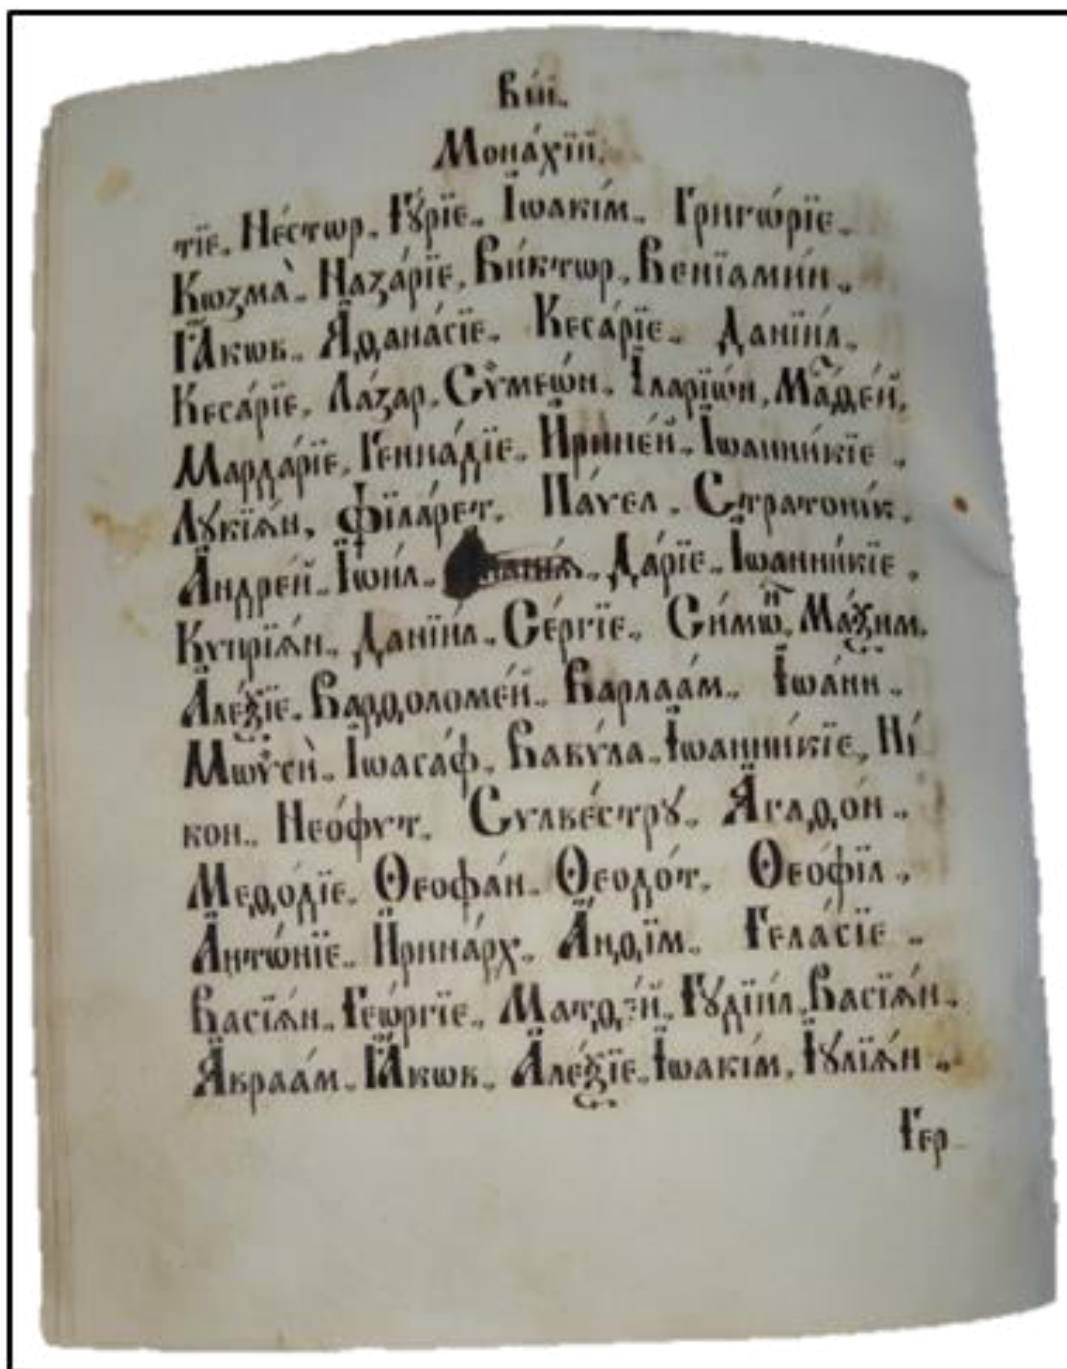 Вші.
Мона́хїй.
тїе. Не́стѡр. Гꙋ́рїе. Іѡакі́м. Григѡ́рїе.
Кѡзма̀. Наза́рїе. Ви́ктѡр. Венїами́н.
Іа́кѡв. Аѳана́сїе. Кеса́рїе. Данїи́л.
Кеса́рїе. Ла́зар. Сѷмеѡ́н. Іларїѡ́н. Маѳе́й.
Марда́рїе. Генна́дїе. Ирине́й. Іѡанни́кїе.
Лꙋкїѧ́н. Філаре́т. Па́ѵел. Стратоні́к.
Андре́й. Іѡи́л. Да́рїе. Іѡанни́кїе.
Кѵпрїѧ́н. Данїи́л. Се́ргїе. Си́мѡⷩ. Ма́ѯим.
Але́ѯїе. Варѳоломе́й. Варлаа́м. Іѡа́нн.
Мѡѷсѝ. Іѡаса́ф. Вавѵ́ла. Іѡанни́кїе. Ні
кон. Нео́фѵт. Сѵлве́стрꙋ. Агаѳо́н.
Меѳо́дїе. Ѳеофа́н. Ѳеодо́т. Ѳео́фїл.
Антѡ́нїе. Ирина́рх. А́нѳїм. Гела́сїе.
Васїѧ́н. Геѡ́ргїе. Матѳе́й. Гꙋдїи́л. Васїѧ́н.
Авраа́м. Іа́кѡв. Але́ѯїе. Іѡакі́м. Іꙋлїѧ́н.
Гер